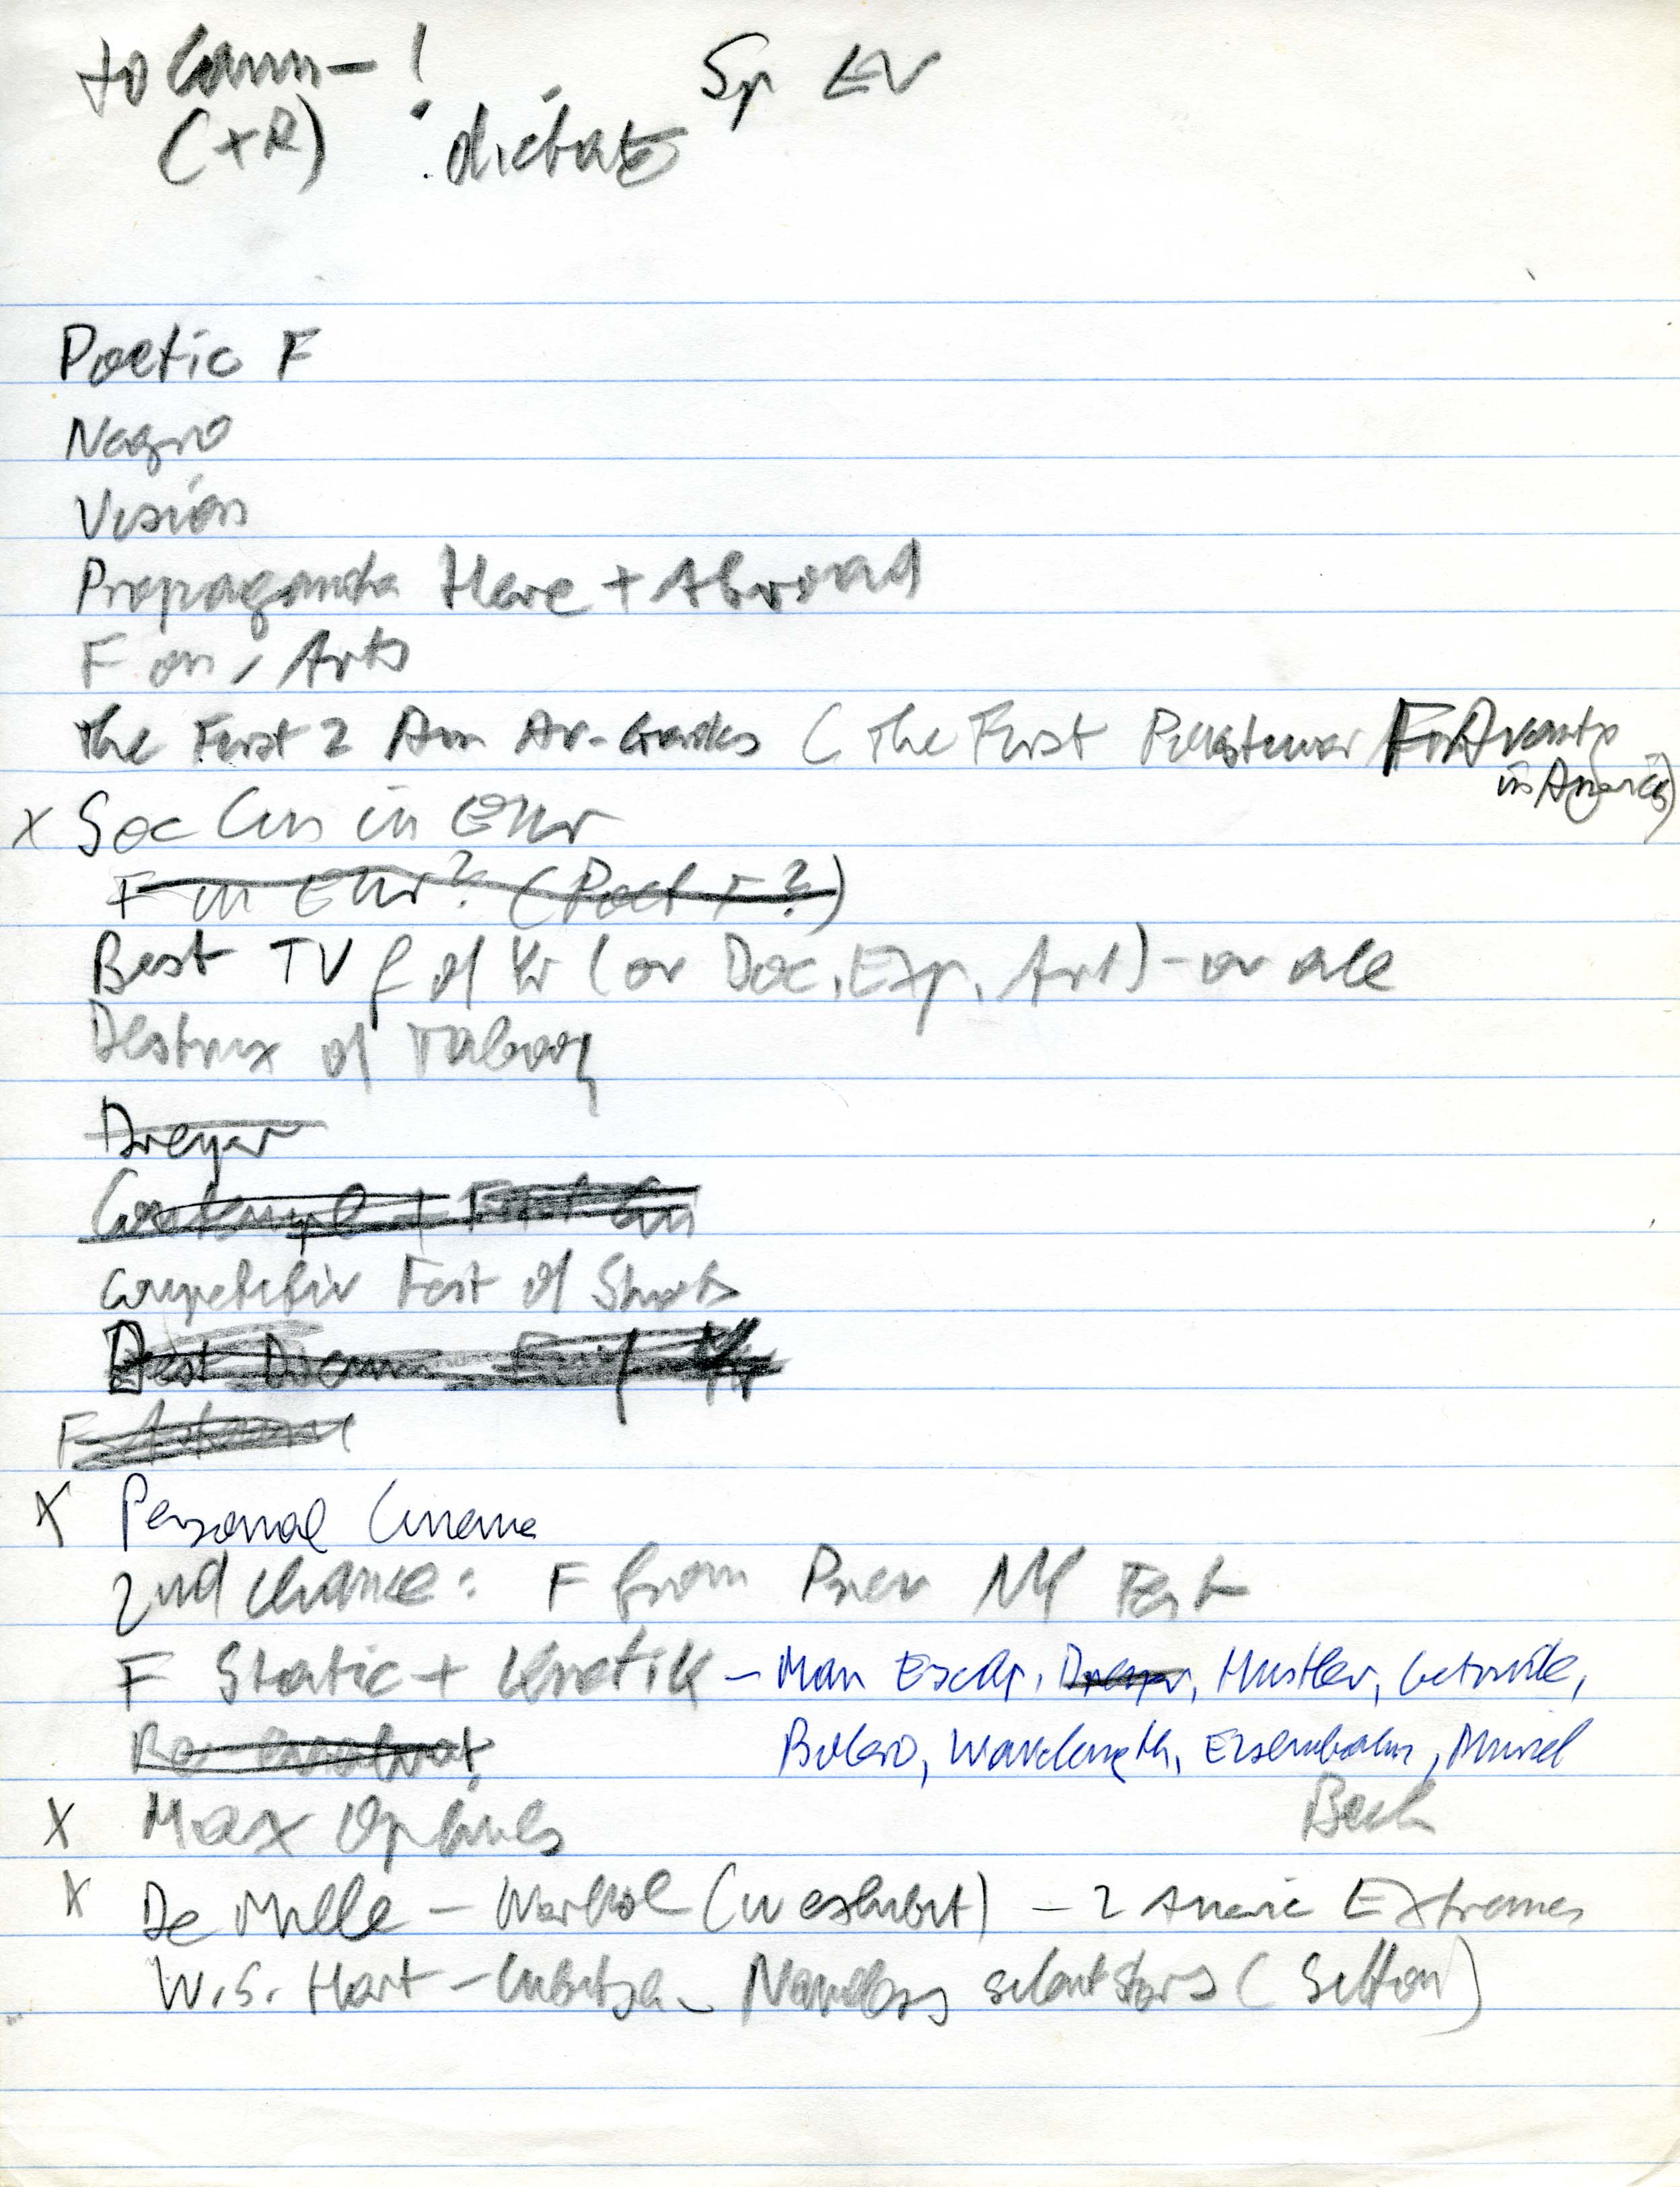 to Comm- ! Sp Ev
(+R) dictate
Poetic F
Negro
Vision
Propaganda Here + Abroad
F on, Arts
The First 2 Am Av-Gardes (The First Postwar
in America)
x Soc Cin in Eur
F in Eur? (Poet F?)
Best TV f of Yr (or Doc, Exp, Art) - or all
Destrux of Taboo
Dreyer
Competitiv Fest of Shorts
F
X Personal Cinema
2nd chance: F from Prev NY Fest
F Static + Kinetik - Man Escap, Dreyer, Hustler, Gertrude,
Bolero, Wavelength, Eisenbahn, Muriel
X Max Ophuls
X De Mille - Warhol (w exhibit) - 2 Americ Extremes
W.S. Hart - Lubitsch - silent stars (